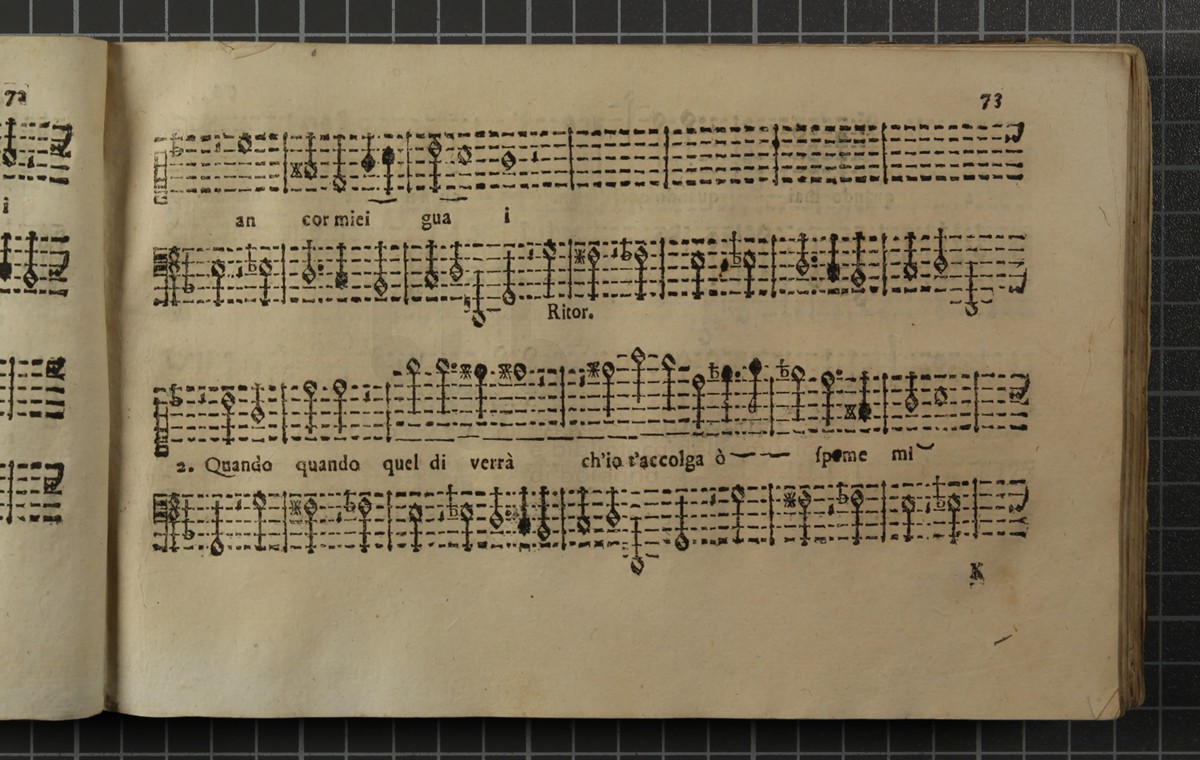 72
i
73
an cor miei gua i
Ritor.
2. Quando quando quel di verrà ch'io t'accolga ò speme mi
K